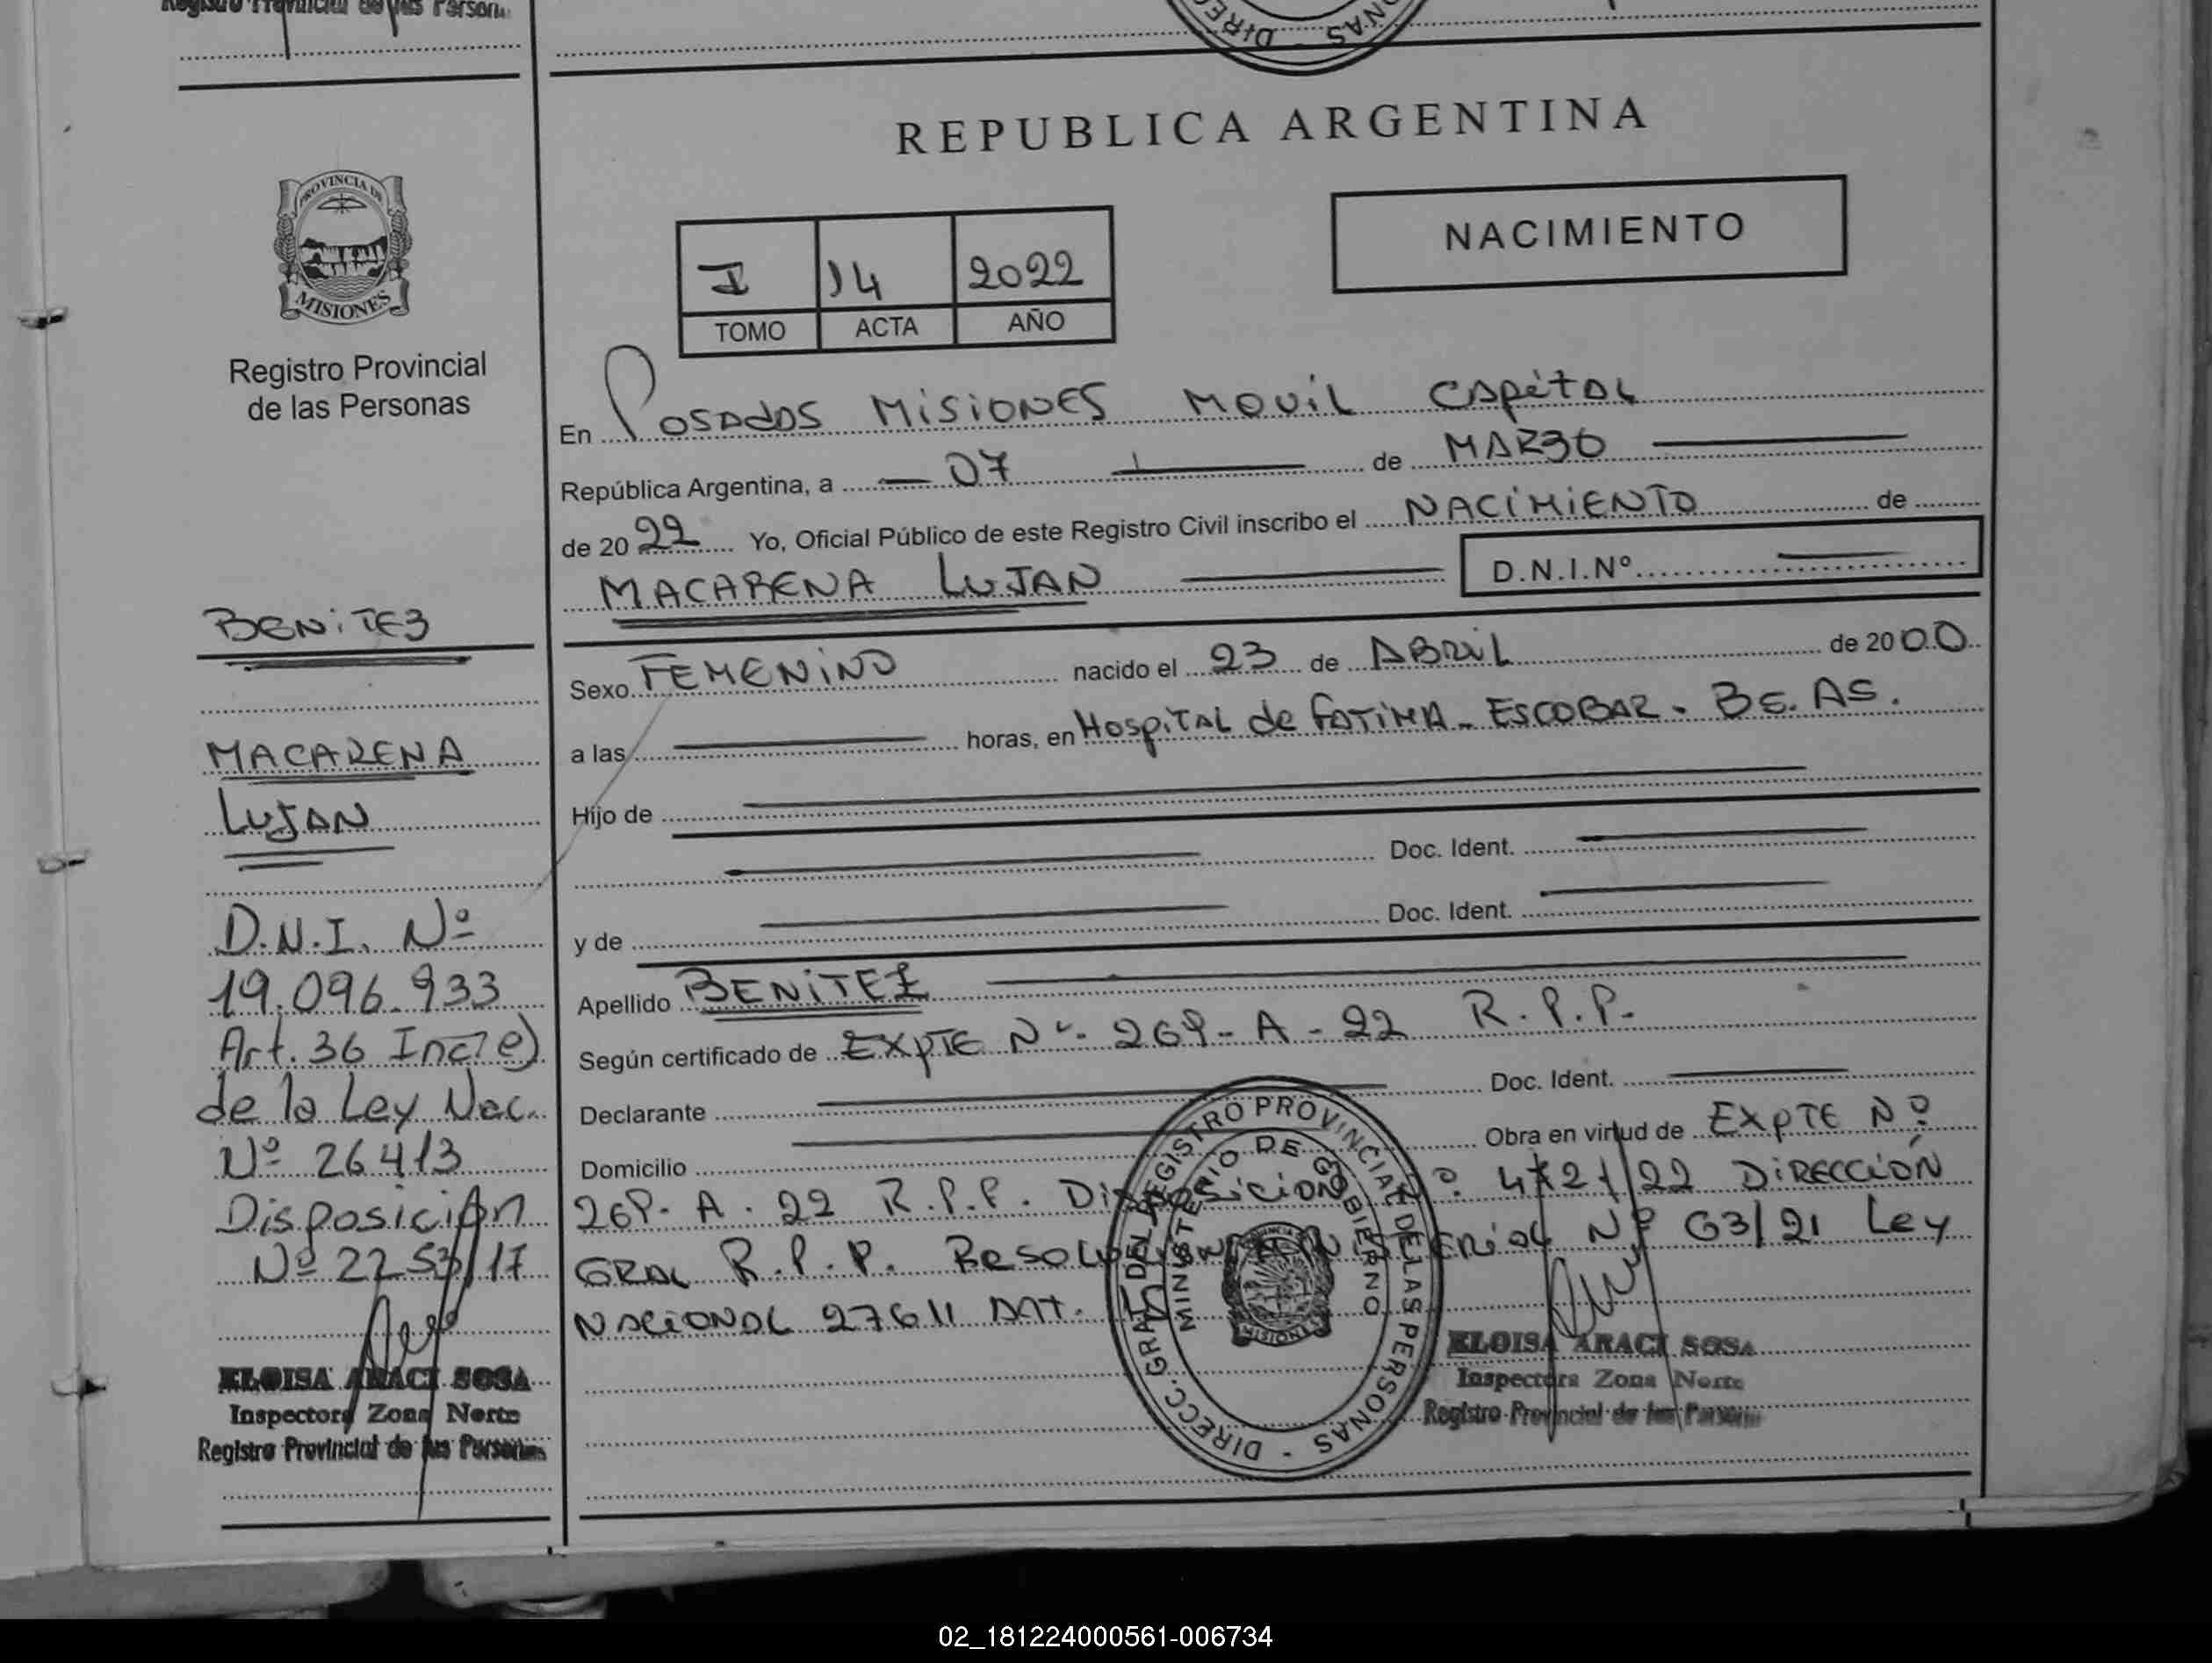 Registro Provincial de las Person
DIREC
ONAS
REPUBLICA ARGENTINA
PROVINCIA DE
MISIONES
NACIMIENTO
I 14 2022
TOMO ACTA AÑO
Registro Provincial
de las Personas
En Posadas Misiones Movil Capital
República Argentina, a 07 de MARZO
de 2022 Yo, Oficial Público de este Registro Civil inscribo el NACIMIENTO de
MACARENA LUJAN D.N.I.Nº
Sexo FEMENINO nacido el 23 de ABRIL de 2000
a las horas, en Hospital de FATIMA - ESCOBAR - BS. AS.
Hijo de
Doc. Ident.
y de Doc. Ident.
Apellido BENITEZ
Según certificado de EXPTE Nº 269-A-22 R.P.P.
Declarante Doc. Ident.
Domicilio Obra en virtud de EXPTE Nº
269-A-22 R.P.P. Disposicion Nº 22 DIRECCIÓN
GRAL R.P.P. Resolucion Ministerial Nº 63/21 Ley
NACIONAL 27611 Art.
BENITEZ
MACARENA
LUJAN
D.N.I. Nº
19.096.933
Art. 36 Inc. e)
de la Ley Nac.
Nº 26413
Disposición
Nº 2253/17
ELOISA ARACI SOSA
Inspectora Zona Norte
Registro Provincial de las Personas
DIRECC. GRAL DEL REGISTRO PROVINCIAL DE LAS PERSONAS -
MINISTERIO DE GOBIERNO
MISIONES
ELOISA ARACI SOSA
Inspectora Zona Norte
Registro Provincial de las Person
02_181224000561-006734